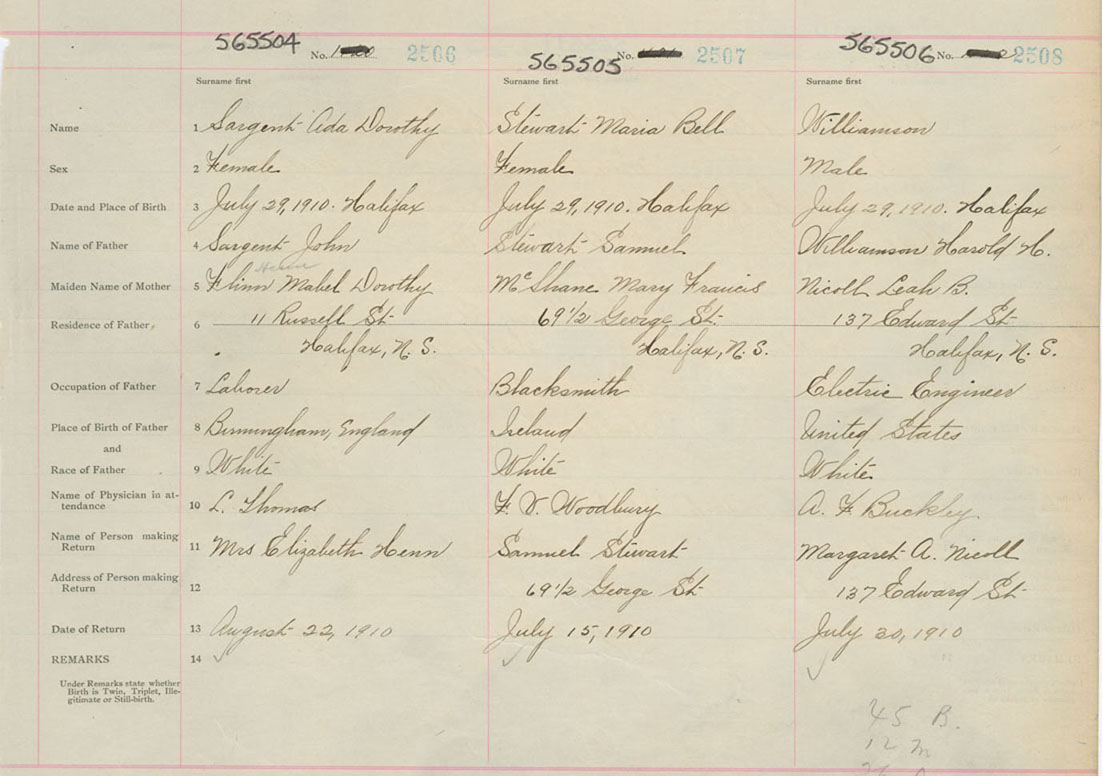 565504 No. 2506 565505 No. 2507 565506 No. 2508
Surname first Surname first Surname first
Name 1 Sargent Ada Dorothy Stewart Maria Bell Williamson
Sex 2 Female Female Male
Date and Place of Birth 3 July 29, 1910. Halifax July 29, 1910. Halifax July 29, 1910. Halifax
Name of Father 4 Sargent John Stewart Samuel Williamson Harold H.
Henn
Maiden Name of Mother 5 Flinn Mabel Dorothy McShane Mary Francis Nicoll Leah B.
Residence of Father, 6 11 Russell St 69 1/2 George St. 137 Edward St
Halifax, N. S. Halifax, N. S. Halifax, N. S.
Occupation of Father 7 Laborer Blacksmith Electric Engineer
Place of Birth of Father 8 Birmingham, England Ireland United States
and
Race of Father 9 White White White
Name of Physician in at-
tendance 10 L. Thomas F. V. Woodbury A. F Buckley
Name of Person making
Return 11 Mrs Elizabeth Henn Samuel Stewart Margaret A. Nicoll
Address of Person making
Return 12 69 1/2 George St 137 Edward St
Date of Return 13 August 22, 1910 July 15, 1910 July 30, 1910
REMARKS 14 ✓ ✓ ✓
Under Remarks state whether
Birth is Twin, Triplet, Ille-
gitimate or Still-birth.
45 B.
12 m